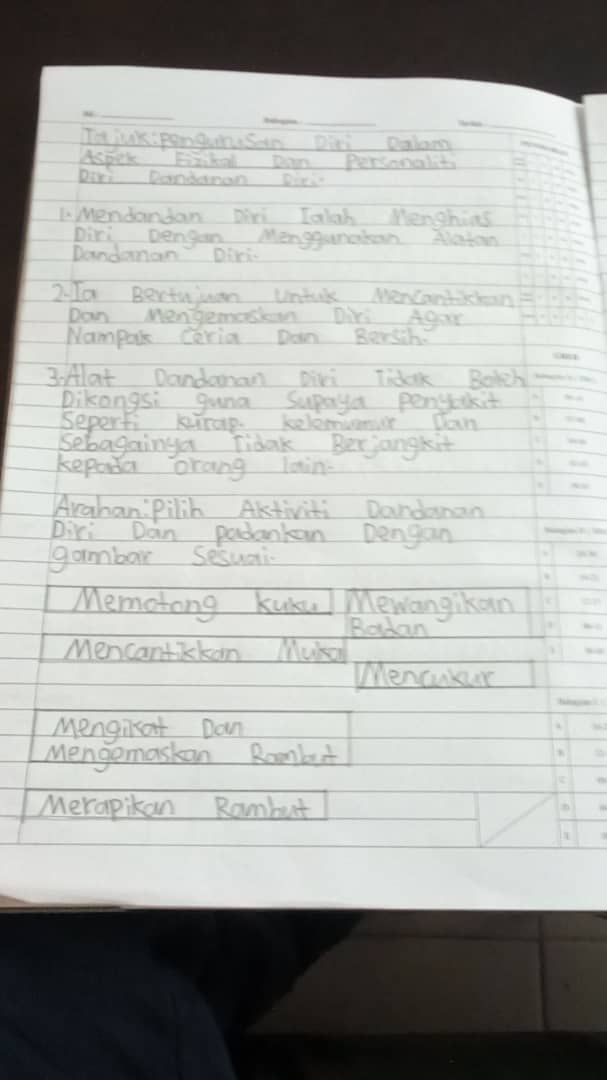 Tajuk:Pengurusan Diri Dalam
Aspek Fizikal Dan Personaliti
Diri Dandanan Diri.
1.Mendandan Diri Ialah Menghias
Diri Dengan Menggunakan Alatan
Dandanan Diri.
2.Ia Bertujuan Untuk Mencantikkan
Dan Mengemaskan Diri Agar
Nampak Ceria Dan Bersih.
3.Alat Dandanan Diri Tidak Boleh
Dikongsi guna Supaya Penyakit
Seperti kurap. kelemumur Dan
Sebagainya Tidak Berjangkit
kepada orang lain.
Arahan:Pilih Aktiviti Dandanan
Diri Dan padankan Dengan
gambar Sesuai.
Memotong kuku
Mewangikan
Badan
Mencantikkan Muka
Mencukur
Mengikat Dan
Mengemaskan Rambut
Merapikan Rambut